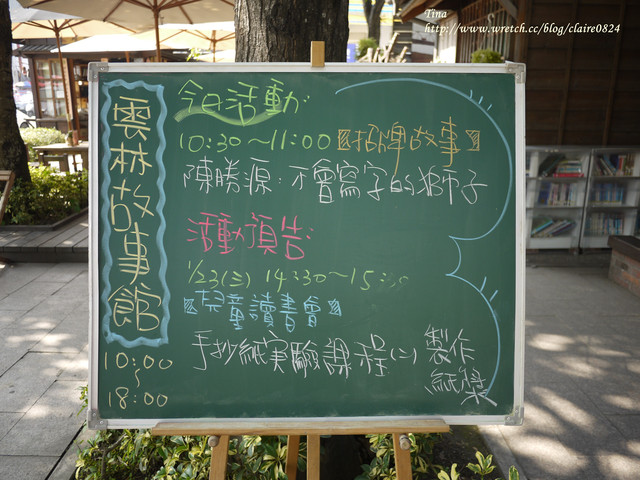 Tina
http://www.wretch.cc/blog/claire0824
雲林故事館
10:00
~
18:00
今日活動
10:30~11:00 【招牌故事】
陳勝源:不會寫字的獅子
活動預告
1/23(三) 14:30~15:
【兒童讀書會】
手抄紙實驗課程(二) 製作
紙漿